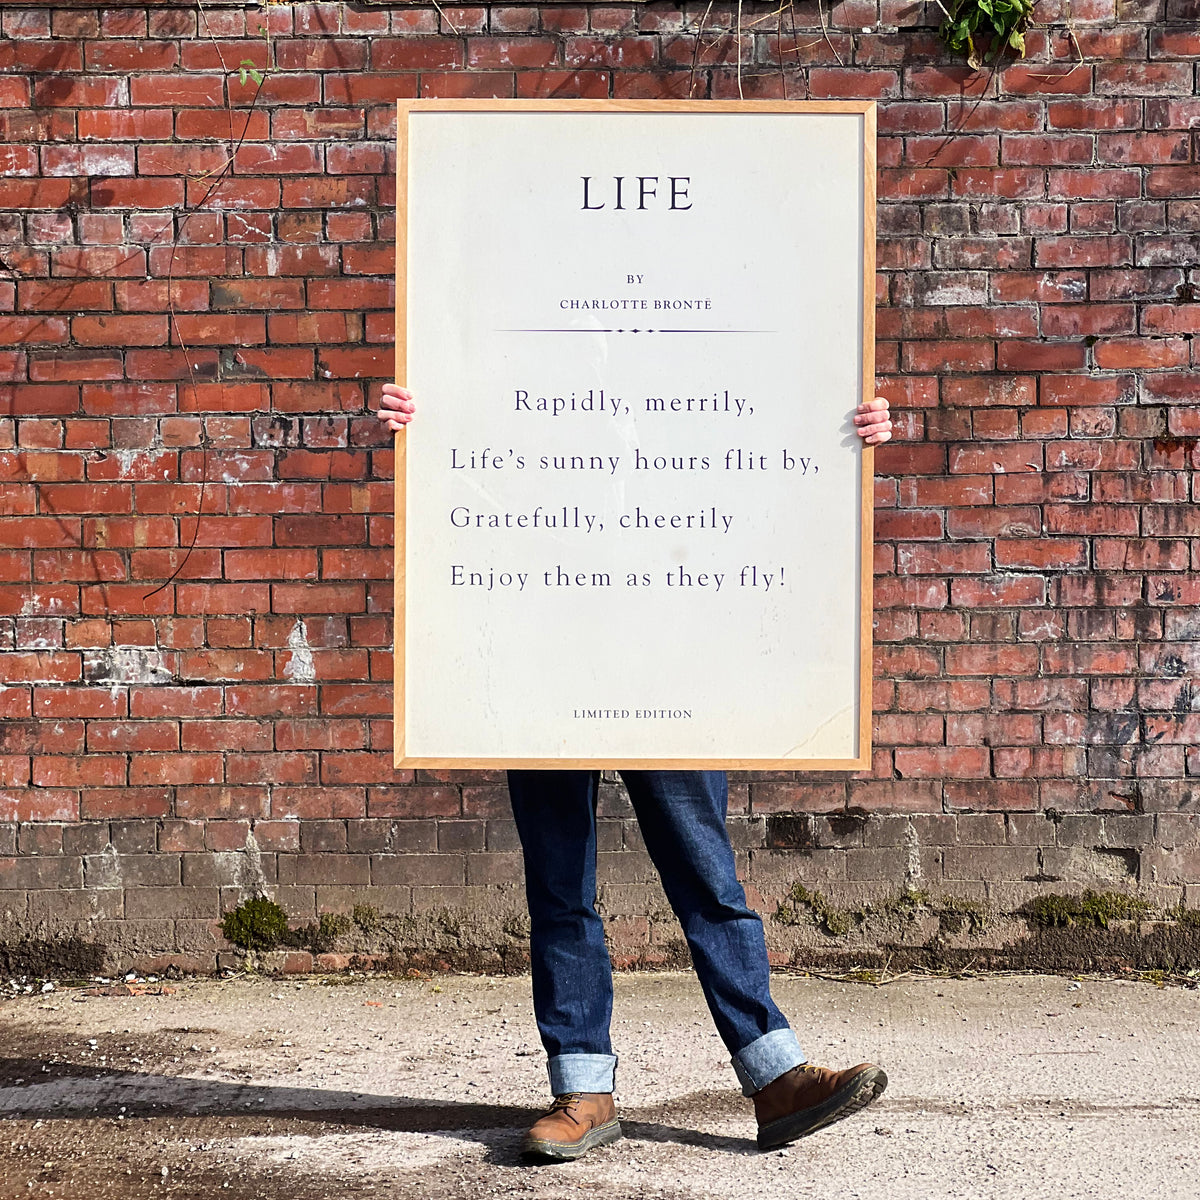 LIFE
BY
CHARLOTTE BRONTË
Rapidly, merrily,
Life’s sunny hours flit by,
Gratefully, cheerily
Enjoy them as they fly!
LIMITED EDITION